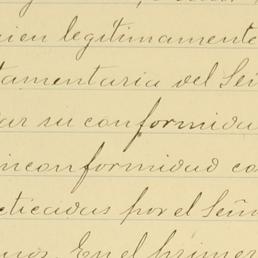 ien legítimamente
tamentaria del Señ
ar su conformida
inconformidad co
cticadas por el Seño
En el primer